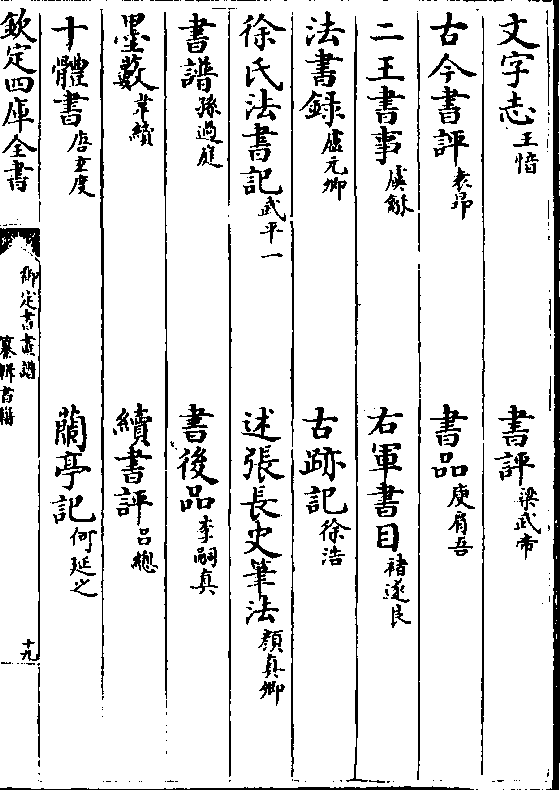 文字志王愔　書評梁武帝
古今書評袁昂　書品庾肩吾
二王書事虞龢　右軍書目褚遂良
法書録盧元卿　古跡記徐浩
徐氏法書記武平一　述張長史筆法顔真卿
書譜孫過庭　書後品李嗣真
墨藪韋續　續書評吕總
十體書唐玄度　蘭亭記何延之
欽定四庫全書
御定書畫譜
纂輯書籍
十九